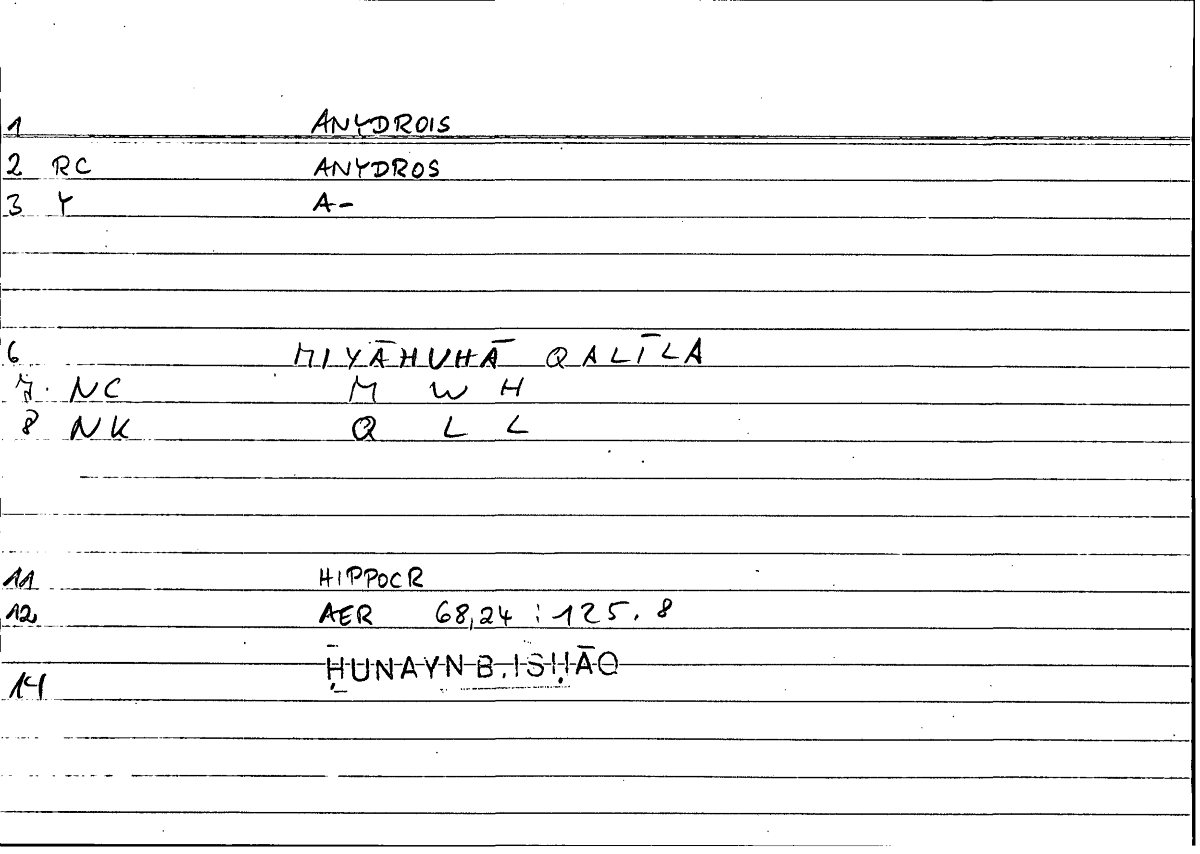 1 ANYDROIS
2 RC ANYDROS
3 Y A-
6 MIYĀHUHĀ QALĪLA
7. NC M W H
8 NK Q L L
11 HIPPOCR
12 AER 68,24 : 125. 8
ḤUNAYN B. ISḤĀQ
14